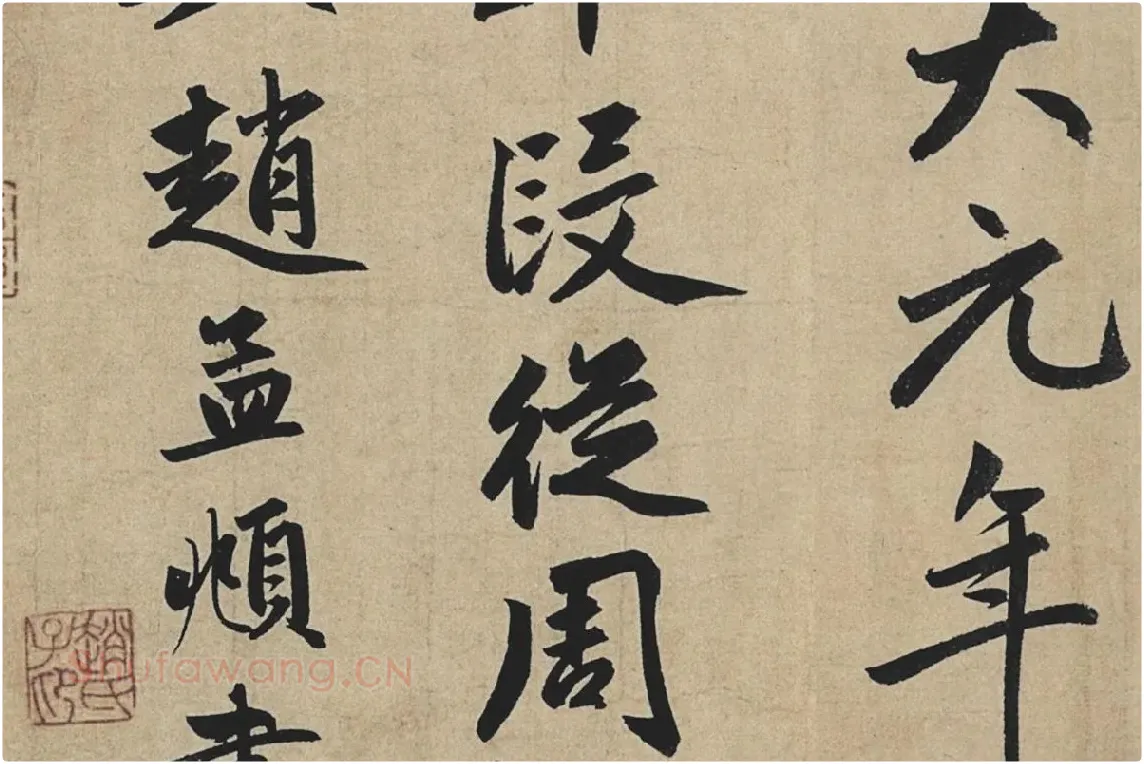 大元年
段從周
趙孟頫書
趙氏子昂
shufawang.CN